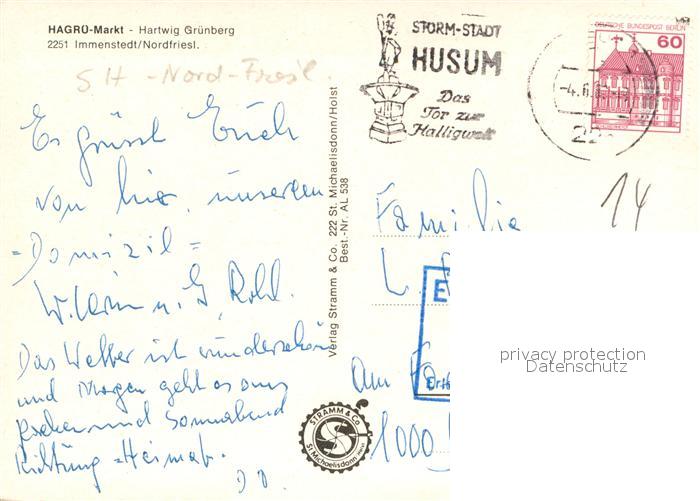 HAGRÜ-Markt - Hartwig Grünberg
2251 Immenstedt/Nordfriesl.
SH-Nord-Friesl.
Es grüsst Euch
von hier, unserem
=Domizil=
u. G. Rohl.
Das Wetter ist wunderschön
und Morgen geht es ans
Packen und Sonnabend
Richtung =Heimat=.
D.O.
Verlag Stramm & Co. 222 St. Michaelisdonn/Holst
Best.-Nr. AL 538
STORM-STADT
HUSUM
Das
Tor zur
Halligwelt
-4.6.8
22
DEUTSCHE BUNDESPOST BERLIN
60
14
Familie
L.
E
Am
1000
STRAMM & CO.
St. Michaelisdonn
privacy protection
Datenschutz